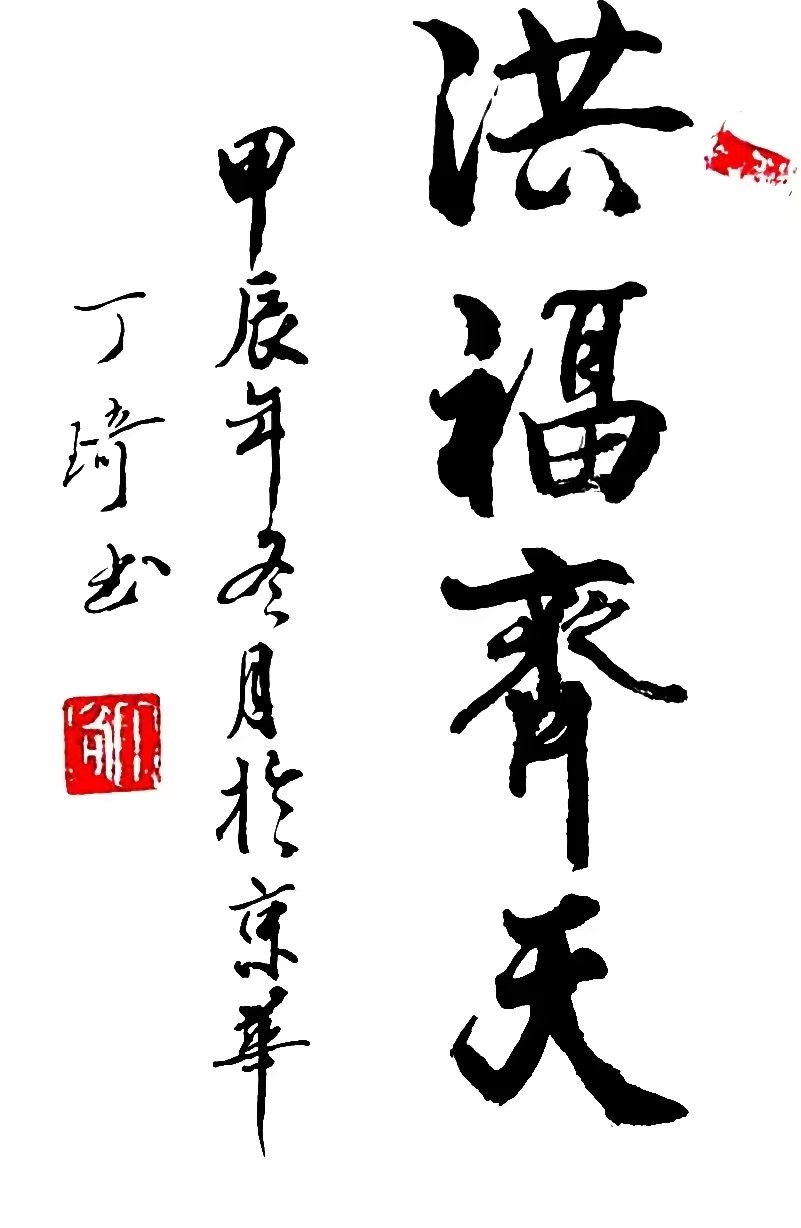 洪福齊天
甲辰年冬月於京華
丁琦书